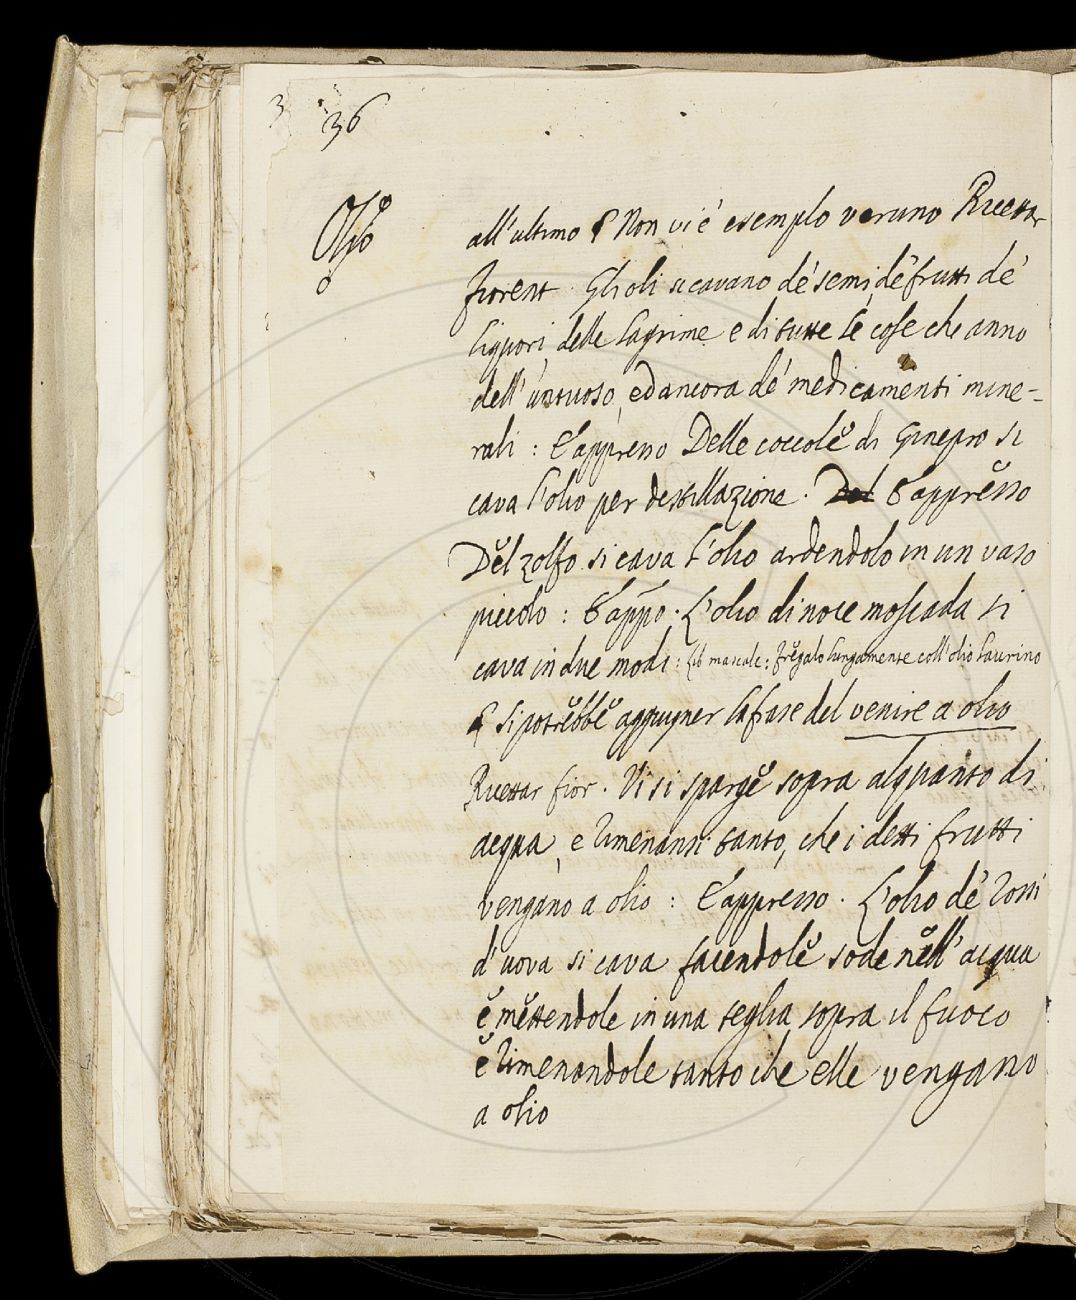 3 36
Olio
all'ultimo § Non vi è esemplo veruno Ricettar
fiorent. Gli oli si cavano de' semi, de' frutti de'
liquori, delle lagrime e di tutte le cose che anno
dell'untuoso, ed ancora de' medicamenti mine-
rali: E appresso Delle coccole di Ginepro si
cava l'olio per destillazione. Del E appresso
Del zolfo si cava l'olio ardendolo in un vaso
piccolo: E appo. L'olio di noce moscada si
cava in due modi: Lib mascalc: fregalo lungamente coll'olio laurino
§ Si potrebbe aggiugner la frase del venire a olio
Ricettar fior. Vi si sparge sopra alquanto di
acqua, e rimenansi tanto, che i detti frutti
vengano a olio: E appresso. L'olio de' rossi
d'uova si cava facendole sode nell'acqua
e mettendole in una teglia sopra il fuoco
e rimenandole tanto che elle vengano
a olio